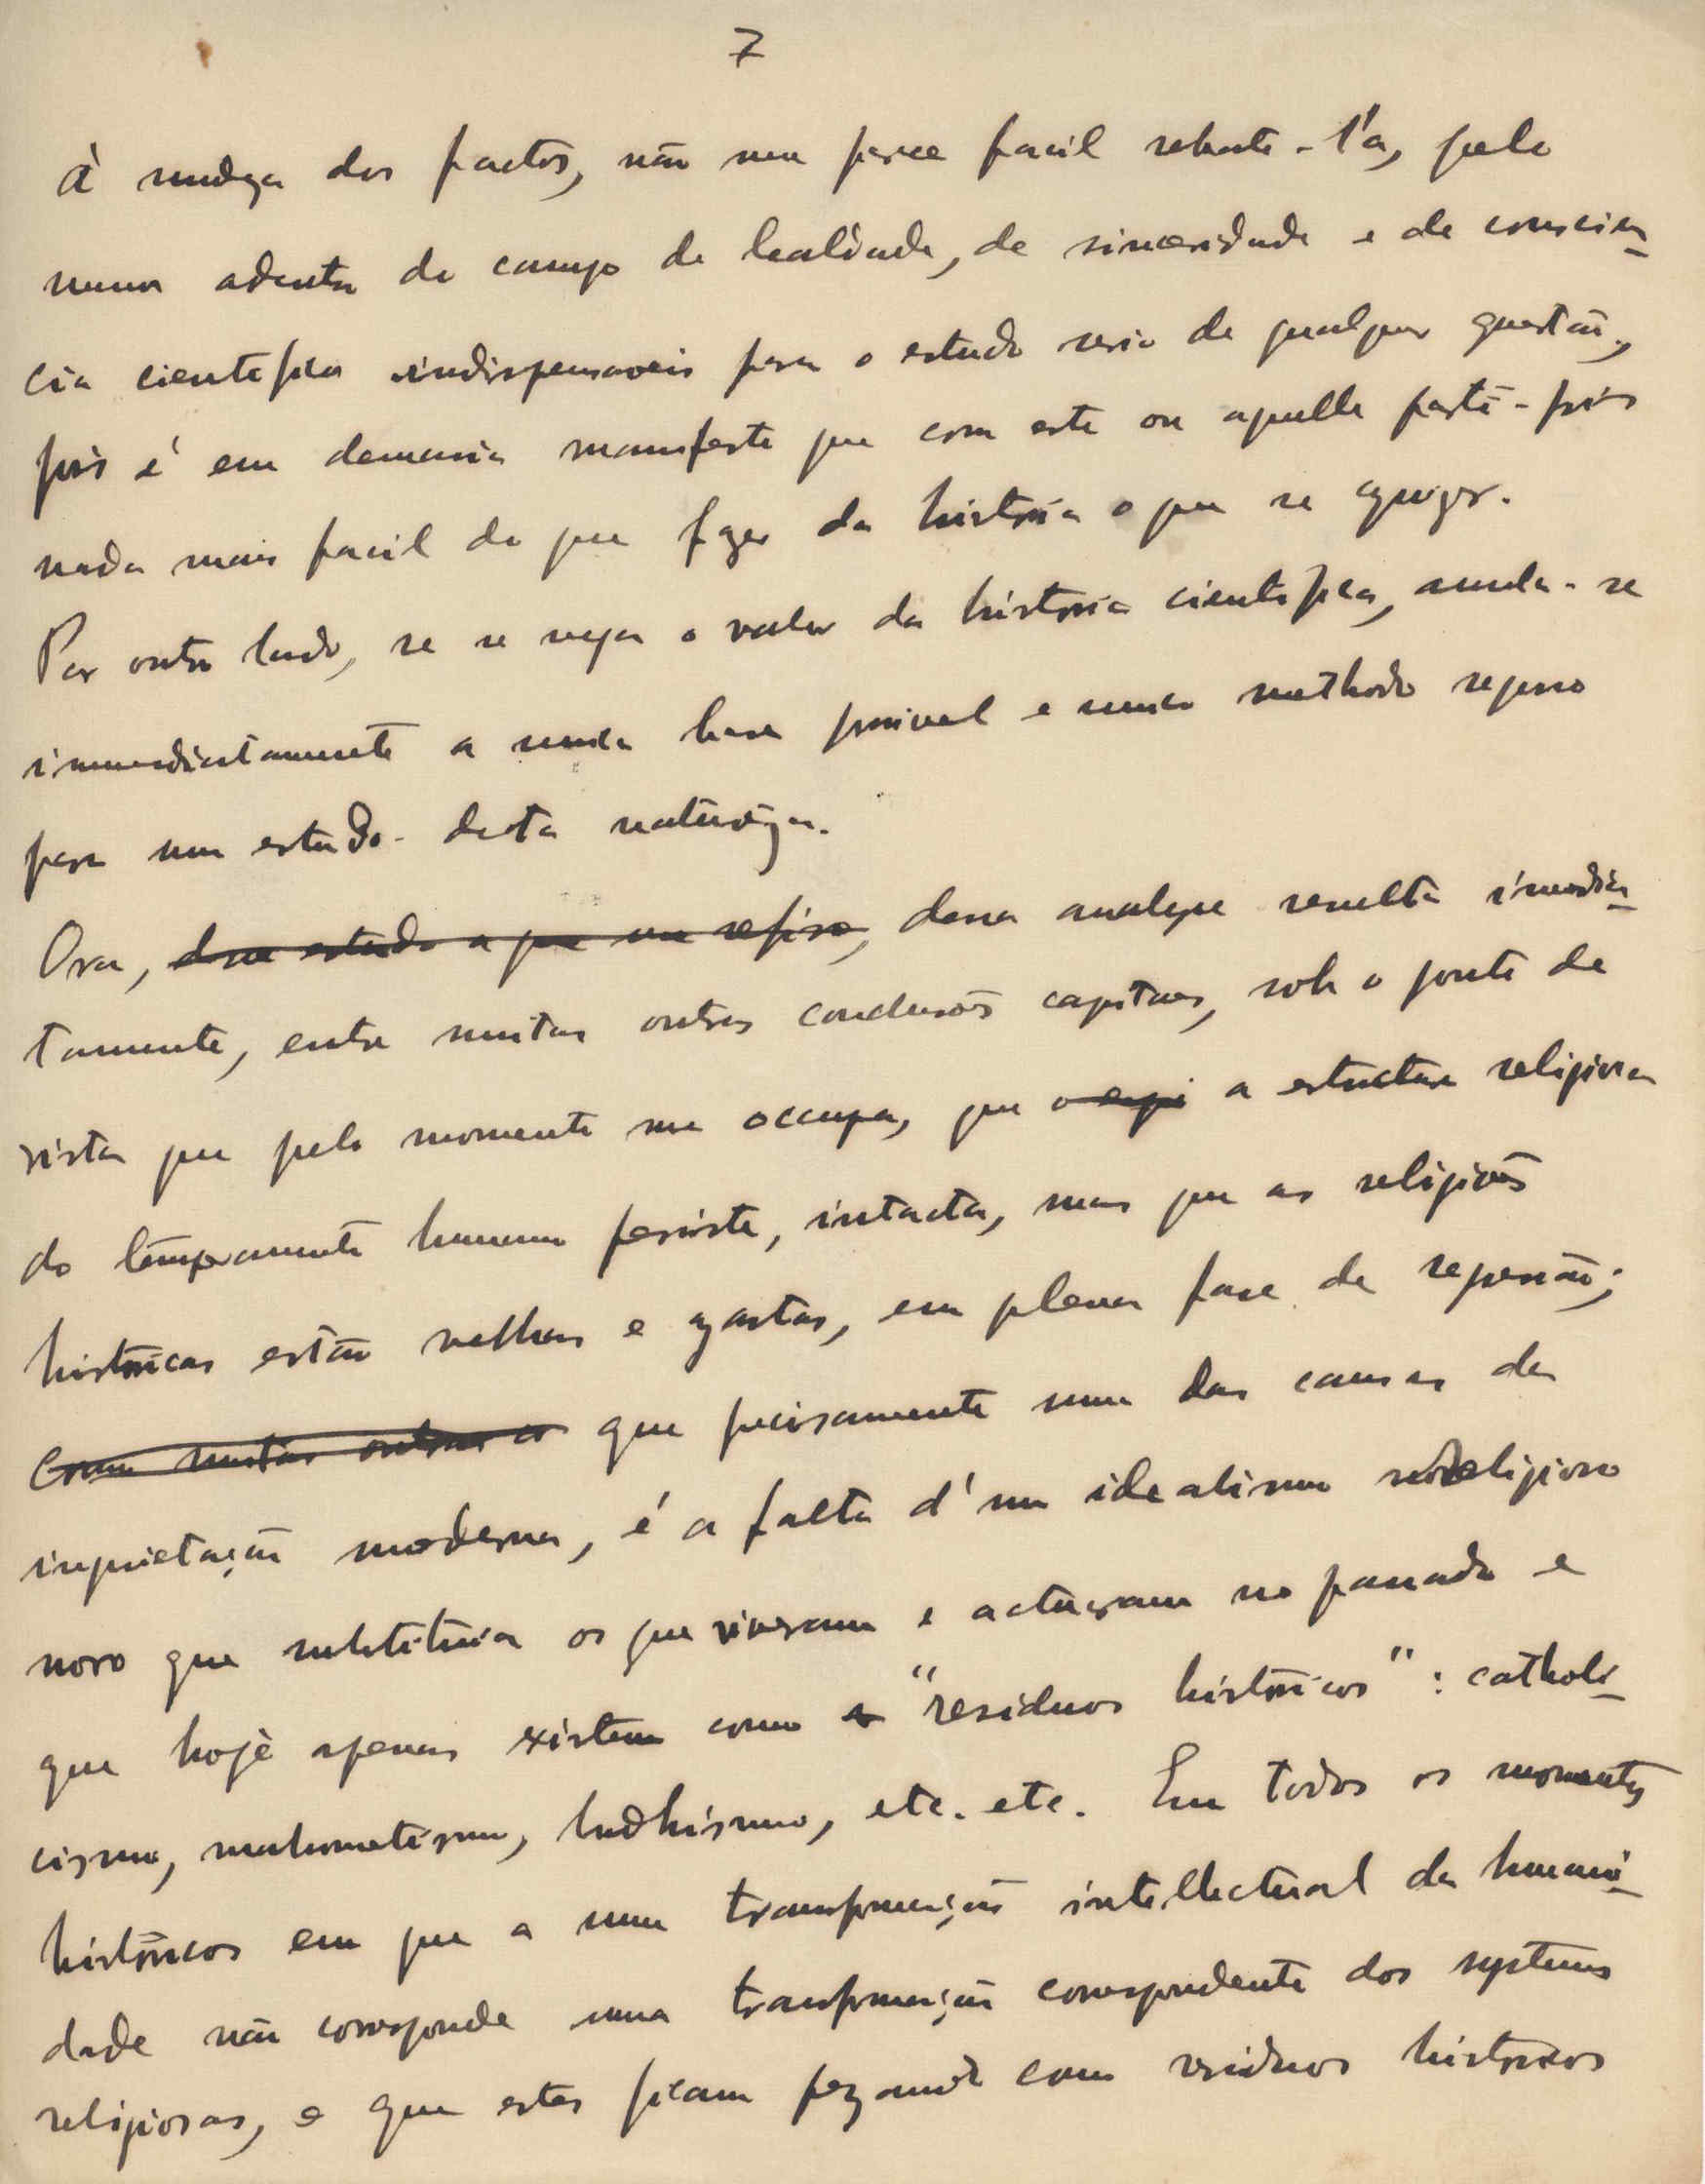 7
À nudeza dos factos, não me parece facil rebate-l'a, pelo
menos adentro do campo de lealdade, de sinceridade e de conscien-
cia cientifica indispensaveis para o estudo serio de qualquer questão,
pois é em demasia manifesto que com este ou aquelle parti-pris
nada mais facil do que fazer da historia o que se quizer.
Por outro lado, se se nega o valor da historia cientifica, anula-se
immediatamente a unica base possivel e unico methodo seguro
para um estudo desta natureza.
Ora, desse estudo a que me refiro, dessa analyse resulta imedia-
tamente, entre muitas outras conclusões capitaes, sob o ponto de
vista que pelo momento me occupa, que a estructura religiosa
do temperamento humano persiste, intacta, mas que as religiões
históricas estão velhas e gastas, em plena fase de regressão;
como muitas outras que precisamente uma das causas da
inquietação moderna, é a falta d'um idealismo religioso
novo que substitúa os que viveram e actuaram no passado e
que hoje apenas existem como "residuos históricos": catholi-
cismo, mahometismo, budhismo, etc. etc. Em todos os momentos
históricos em que a uma transformação intellectual da humani-
dade não corresponde uma transformação correspondente dos systemas
religiosos, e que estes ficam pezando como residuos historicos